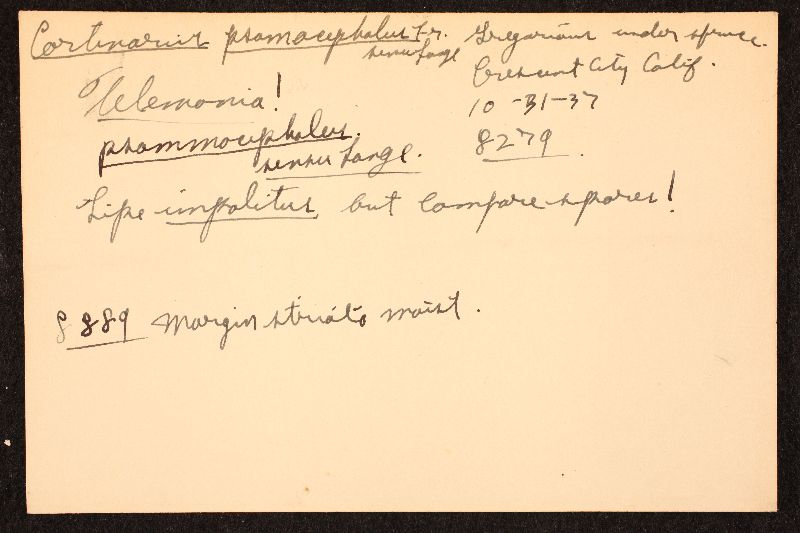 Cortinarius psamocephalus Fr.
sensu Lange
Gregarious under spruce.
Crescent City Calif.
10-31-37
8279
Telemonia!
psammocephalus.
sensu Lange.
Like impolitus but compare spores!
8889 Margin striate moist.